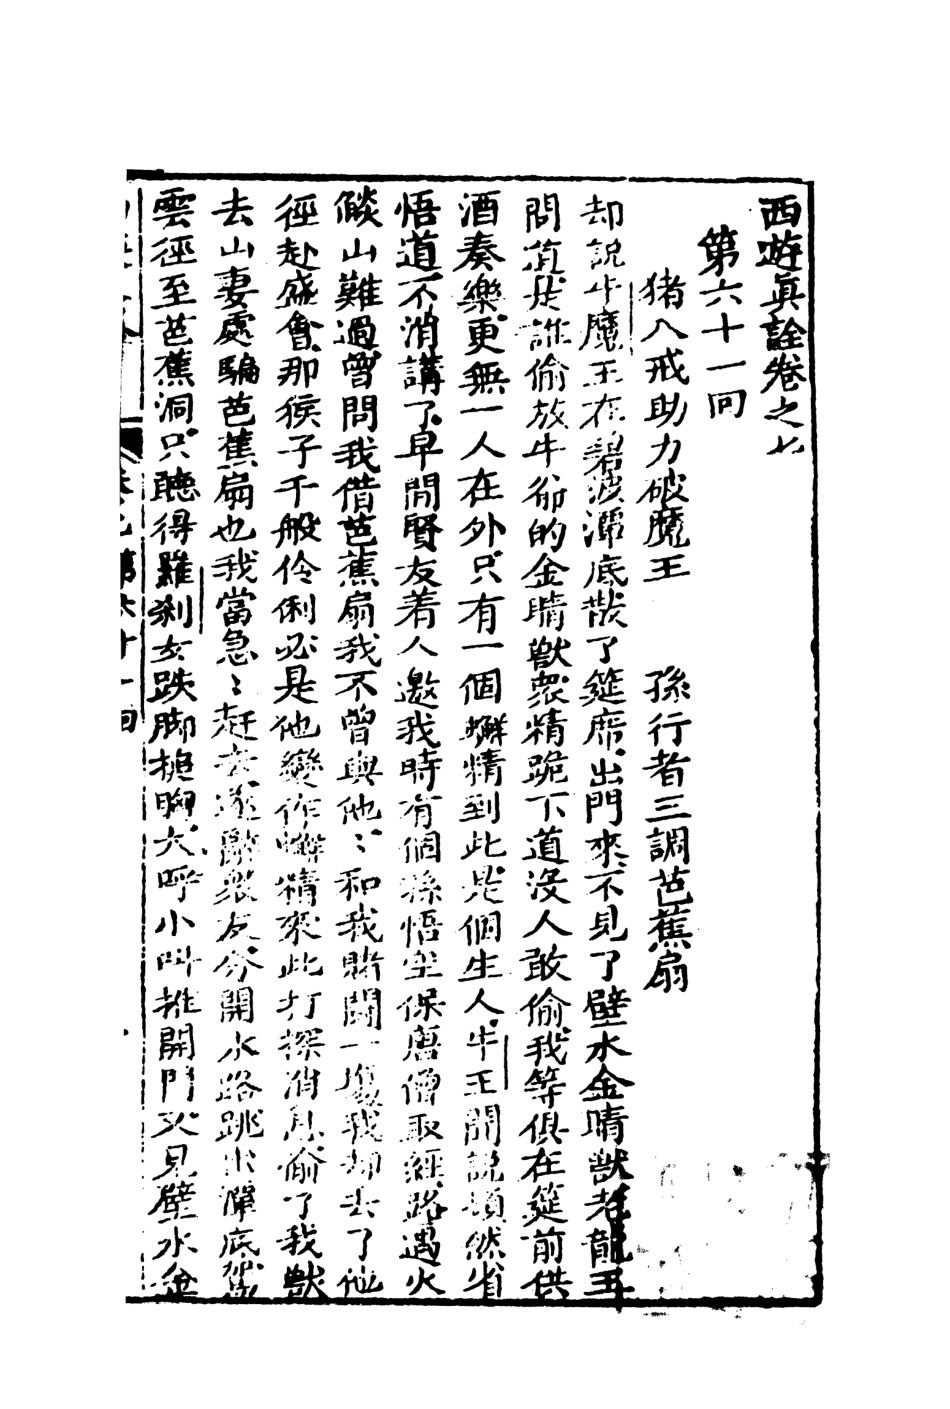 西遊眞詮卷之七
第六十一回
猪八戒助力破魔王　孫行者三調芭蕉扇
却說牛魔王在碧波潭底散了筵席出門來不見了壁水金睛獸老龍王
問眞是誰偷放牛爺的金睛獸衆精跪下道沒人敢偷我等俱在筵前供
酒奏樂更無一人在外只有一個蠏精到此是個生人牛王聞說頓然省
悟道不消講了早間賢友着人邀我時有個孫悟空保唐僧取經路遇火
燄山難過曾問我借芭蕉扇我不曾與他〻和我賭鬪一塲我却去了他
徑赴盛會那猴子千般伶俐必是他變作蠏精來此打探消息偷了我獸
去山妻處騙芭蕉扇也我當急〻赶去遂辭衆友分開水路跳出潭底駕
雲徑至芭蕉洞只聽得羅刹女跌脚搥胸大呼小叫推開門又見壁水金
卷七第六十一回